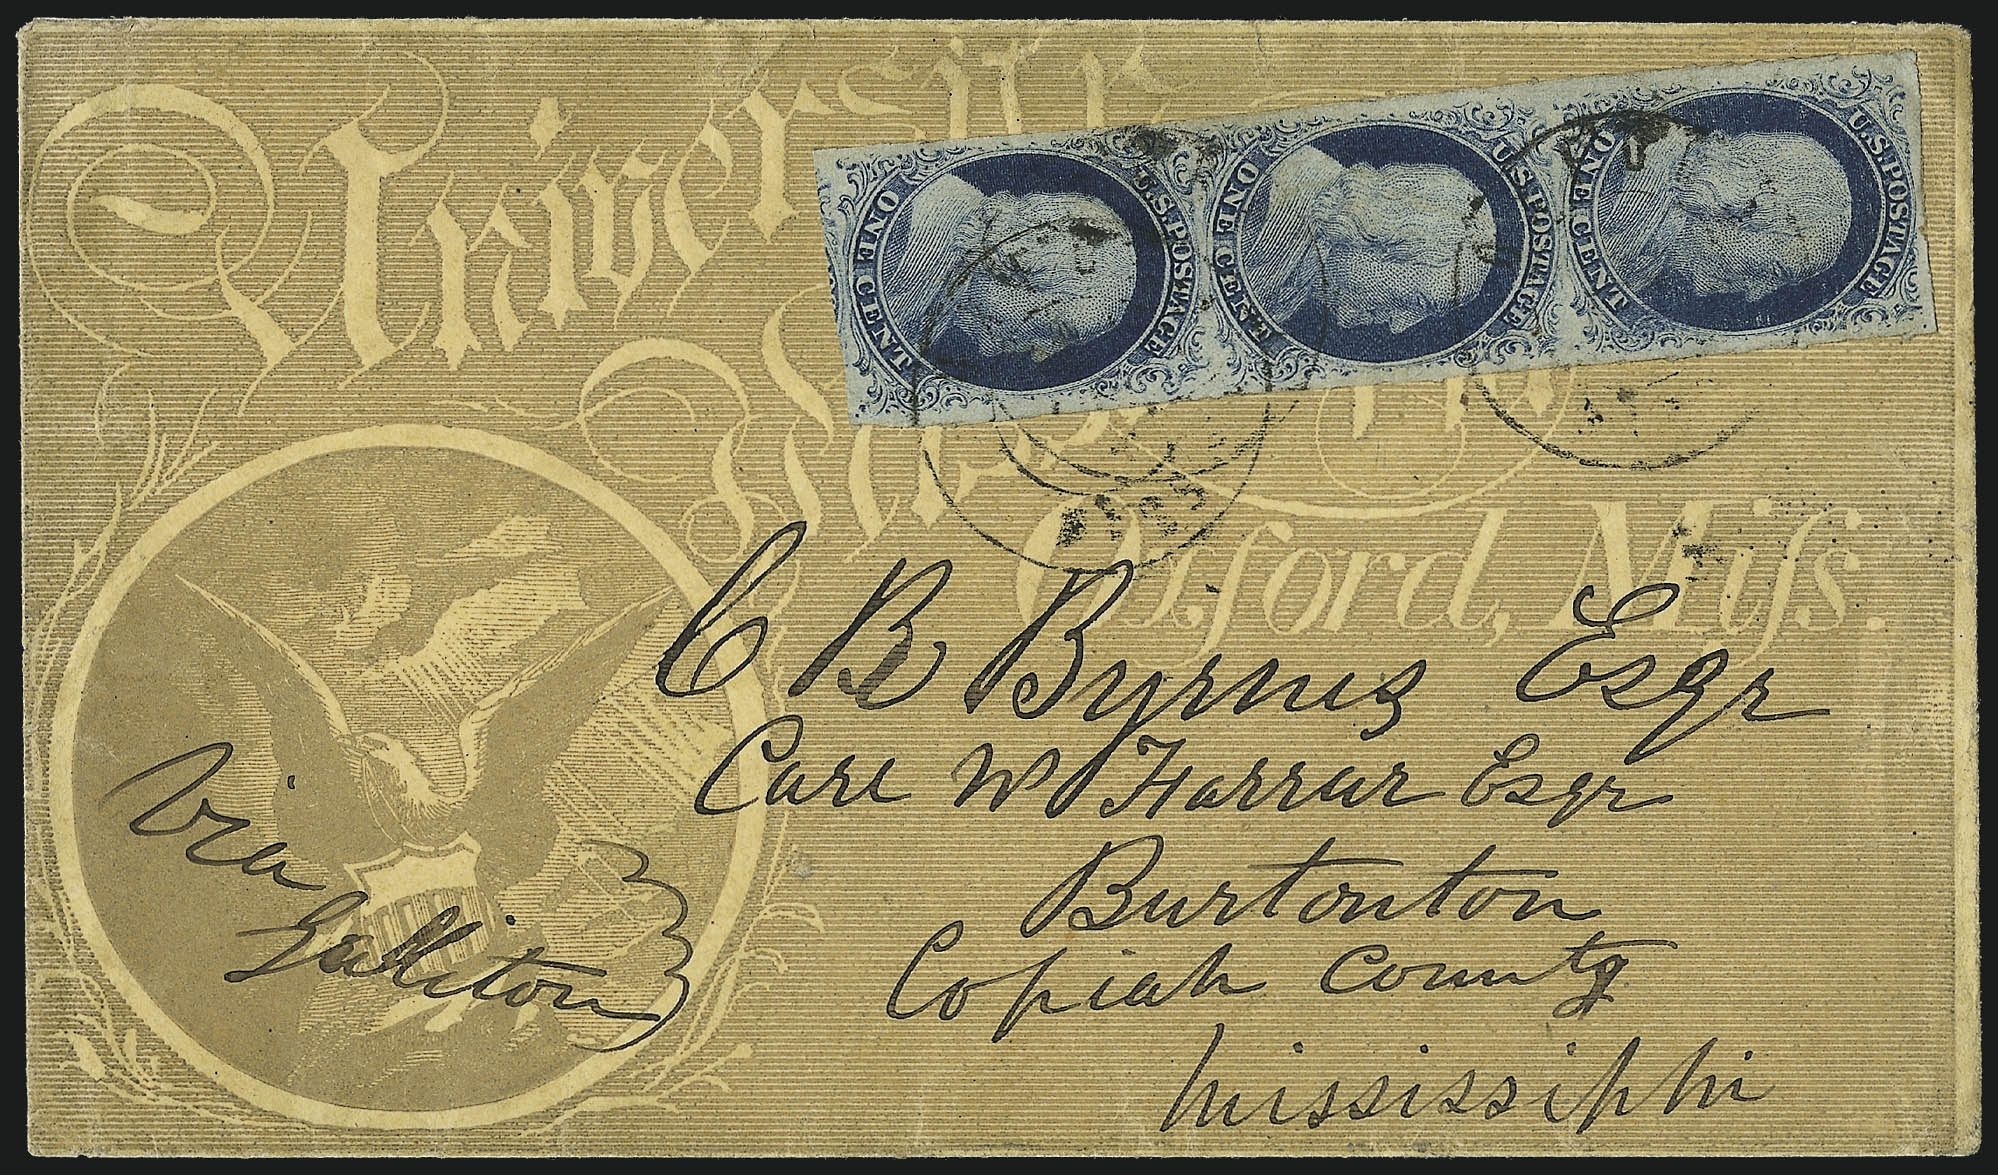 University
Oxford, Miſs.
U.S. POSTAGE
ONE CENT
U.S. POSTAGE
ONE CENT
U.S. POSTAGE
ONE CENT
C B Byrnes Esqr
Care W Farrar Esqr
Burtonton
Copiah County
Mississippi
Via
Galliton